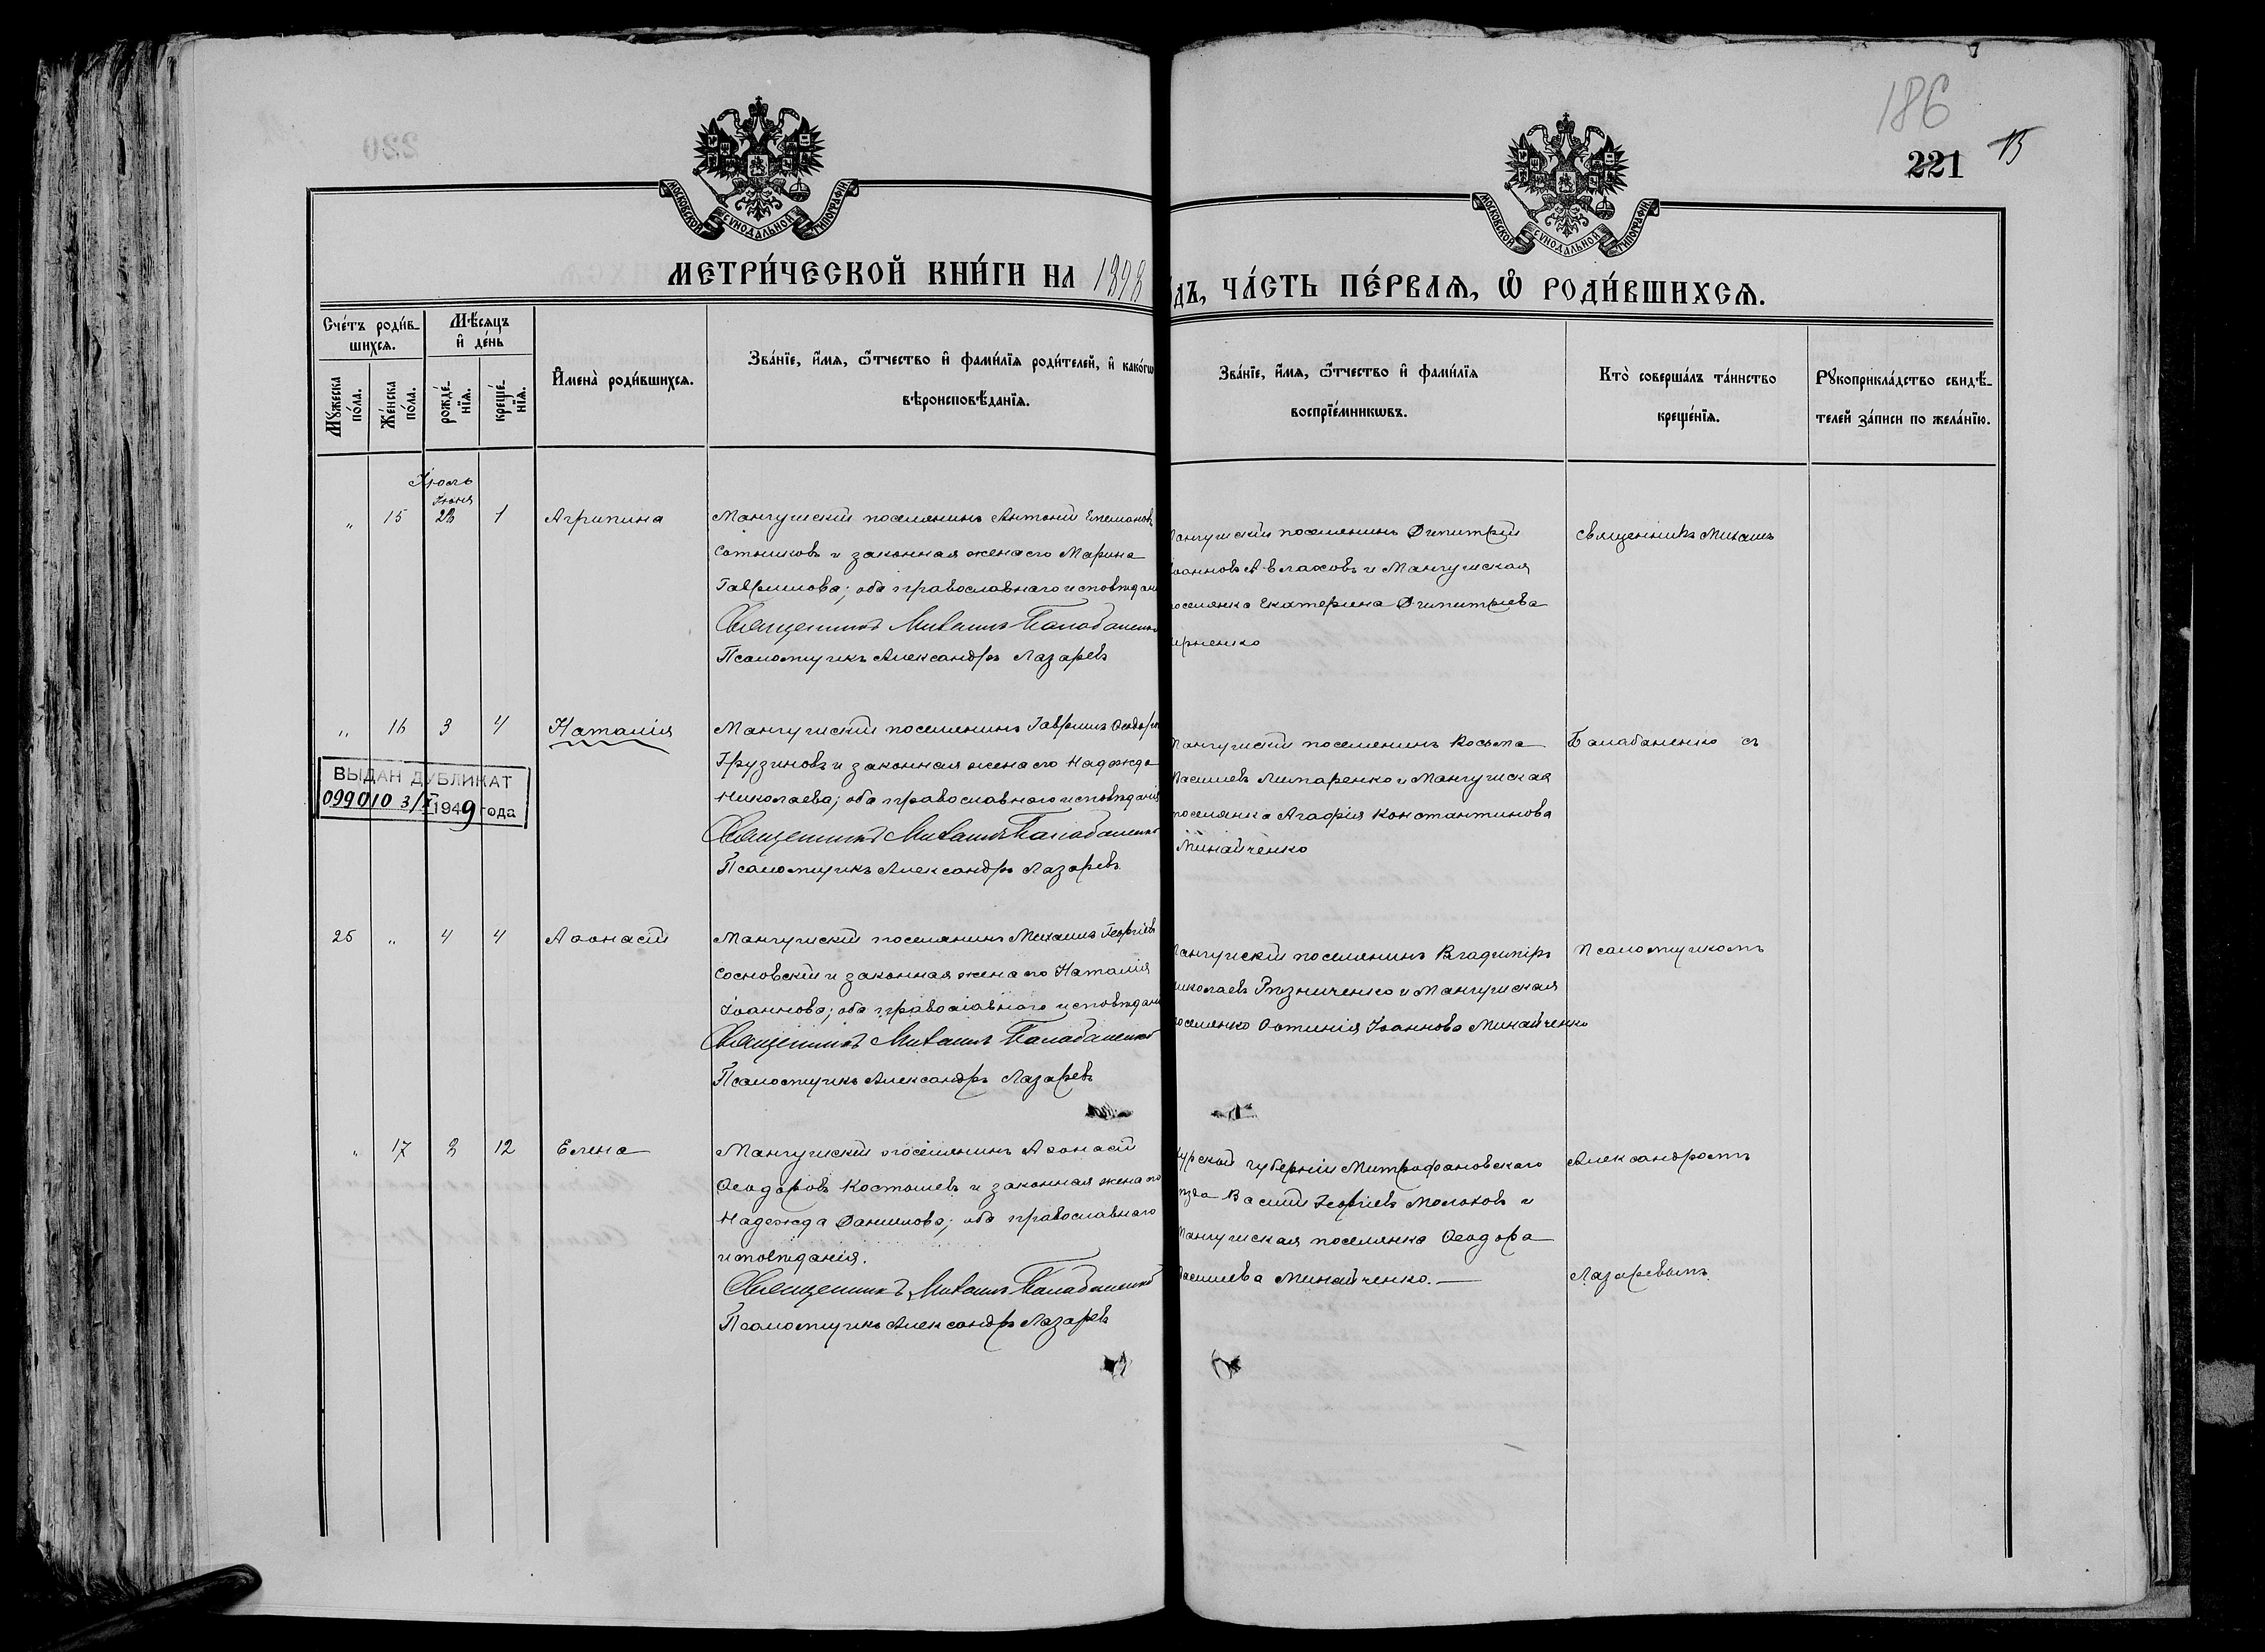 186
221
15
МОСКОВСКОЙ СУНОДАЛЬНОЙ ТИПОГРАФІИ
МОСКОВСКОЙ СУНОДАЛЬНОЙ ТИПОГРАФІИ
МЕТРИ́ЧЕСКОЙ КНИ́ГИ НА 1898
ДЪ, ЧА́СТЬ ПЕ́РВАѦ, Ѡ҆ РОДИ́ВШИХСѦ.
Сче́тъ роди́в-
шихсѧ.
Мѣ́сѧцъ
и҆ де́нь
Мꙋ́жеска
по́ла.
Же́нска
по́ла.
рожде́-
нїѧ.
креще́-
нїѧ.
И҆мена̀ роди́вшихсѧ.
Зва́нїе, и҆́мѧ, ѻ҆́тчество и҆ фами́лїѧ роди́телей, и҆ како́гѡ
вѣроисповѣ́данїѧ.
Зва́нїе, и҆́мѧ, ѻ҆́тчество и҆ фами́лїѧ
воспрїе́мникѡвъ.
Кто̀ соверша́лъ та́инство
креще́нїѧ.
Рꙋкоприкла́дство свидѣ́-
телей за́писи по жела́нїю.
Іюль
Іюня
" 15 23 1 Агрипина
Мангушскій поселянинъ Антоній
Сотниковъ и законная жена его Марина
Гаврилова; оба православнаго исповѣдані
Священникъ Михаилъ Балабаненко
Псаломщикъ Александръ Лазаревъ
ангушскій поселянинъ Димитрій
оанновъ Авлаховъ и Мангушская
оселянка Екатерина Димитріева
ерненко
Священникъ Михаилъ
" 16 3 4 Наталія
Мангушскій поселянинъ Гавріилъ Ѳеодоро
Грузиновъ и законная жена его Надежда
Николаева; оба православнаго исповѣданія
Священникъ Михаилъ Балабаненко
Псаломщикъ Александръ Лазаревъ
ангушскій поселянинъ Косьма
Васильевъ Литаренко и Мангушская
поселянка Агафія Константинова
Минайченко
Балабаненко съ
ВЫДАН ДУБЛИКАТ
099010 3/X 1949 года
25 " 4 4 Аѳонасій
Мангушскій поселянинъ Михаилъ Георгіевъ
Сосновскій и законная жена его Наталія
Іоаннова; оба православнаго исповѣдані
Священникъ Михаилъ Балабаненко
Псаломщикъ Александръ Лазаревъ
ангушскій поселянинъ Владиміръ
иколаевъ Рѣзниченко и Мангушская
оселянка Іоаннова Минайченко
Псаломщикомъ
" 17 12 Елена
Мангушскій поселянинъ Аѳонасій
Ѳеодоровъ Костюшевъ и законная жена его
Надежда Данилова; оба православнаго
исповѣданія.
Священникъ Михаилъ Балабаненко
Псаломщикъ Александръ Лазаревъ
урской губерніи Митрофановскаго
ѣзда Василій Георгіевъ Молоковъ и
Мангушская поселянка Ѳеодора
Васильева Минайченко.
Александромъ
Лазаревымъ.